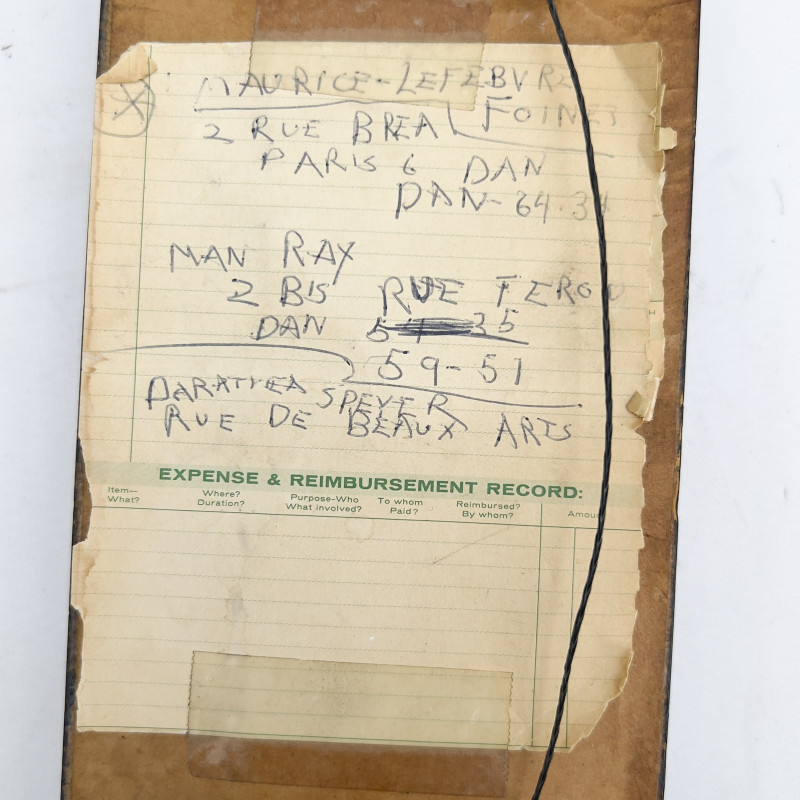 MAURICE-LEFEBVRE
FOINET
2 RUE BREA
PARIS 6 DAN
DAN-64.34
MAN RAY
2 BIS RUE FEROU
DAN 54 35
59-51
DARATHEA SPEYER
RUE DE BEAUX ARTS
EXPENSE & REIMBURSEMENT RECORD:
Item—What? Where? Duration? Purpose-Who What involved? To whom Paid? Reimbursed? By whom?